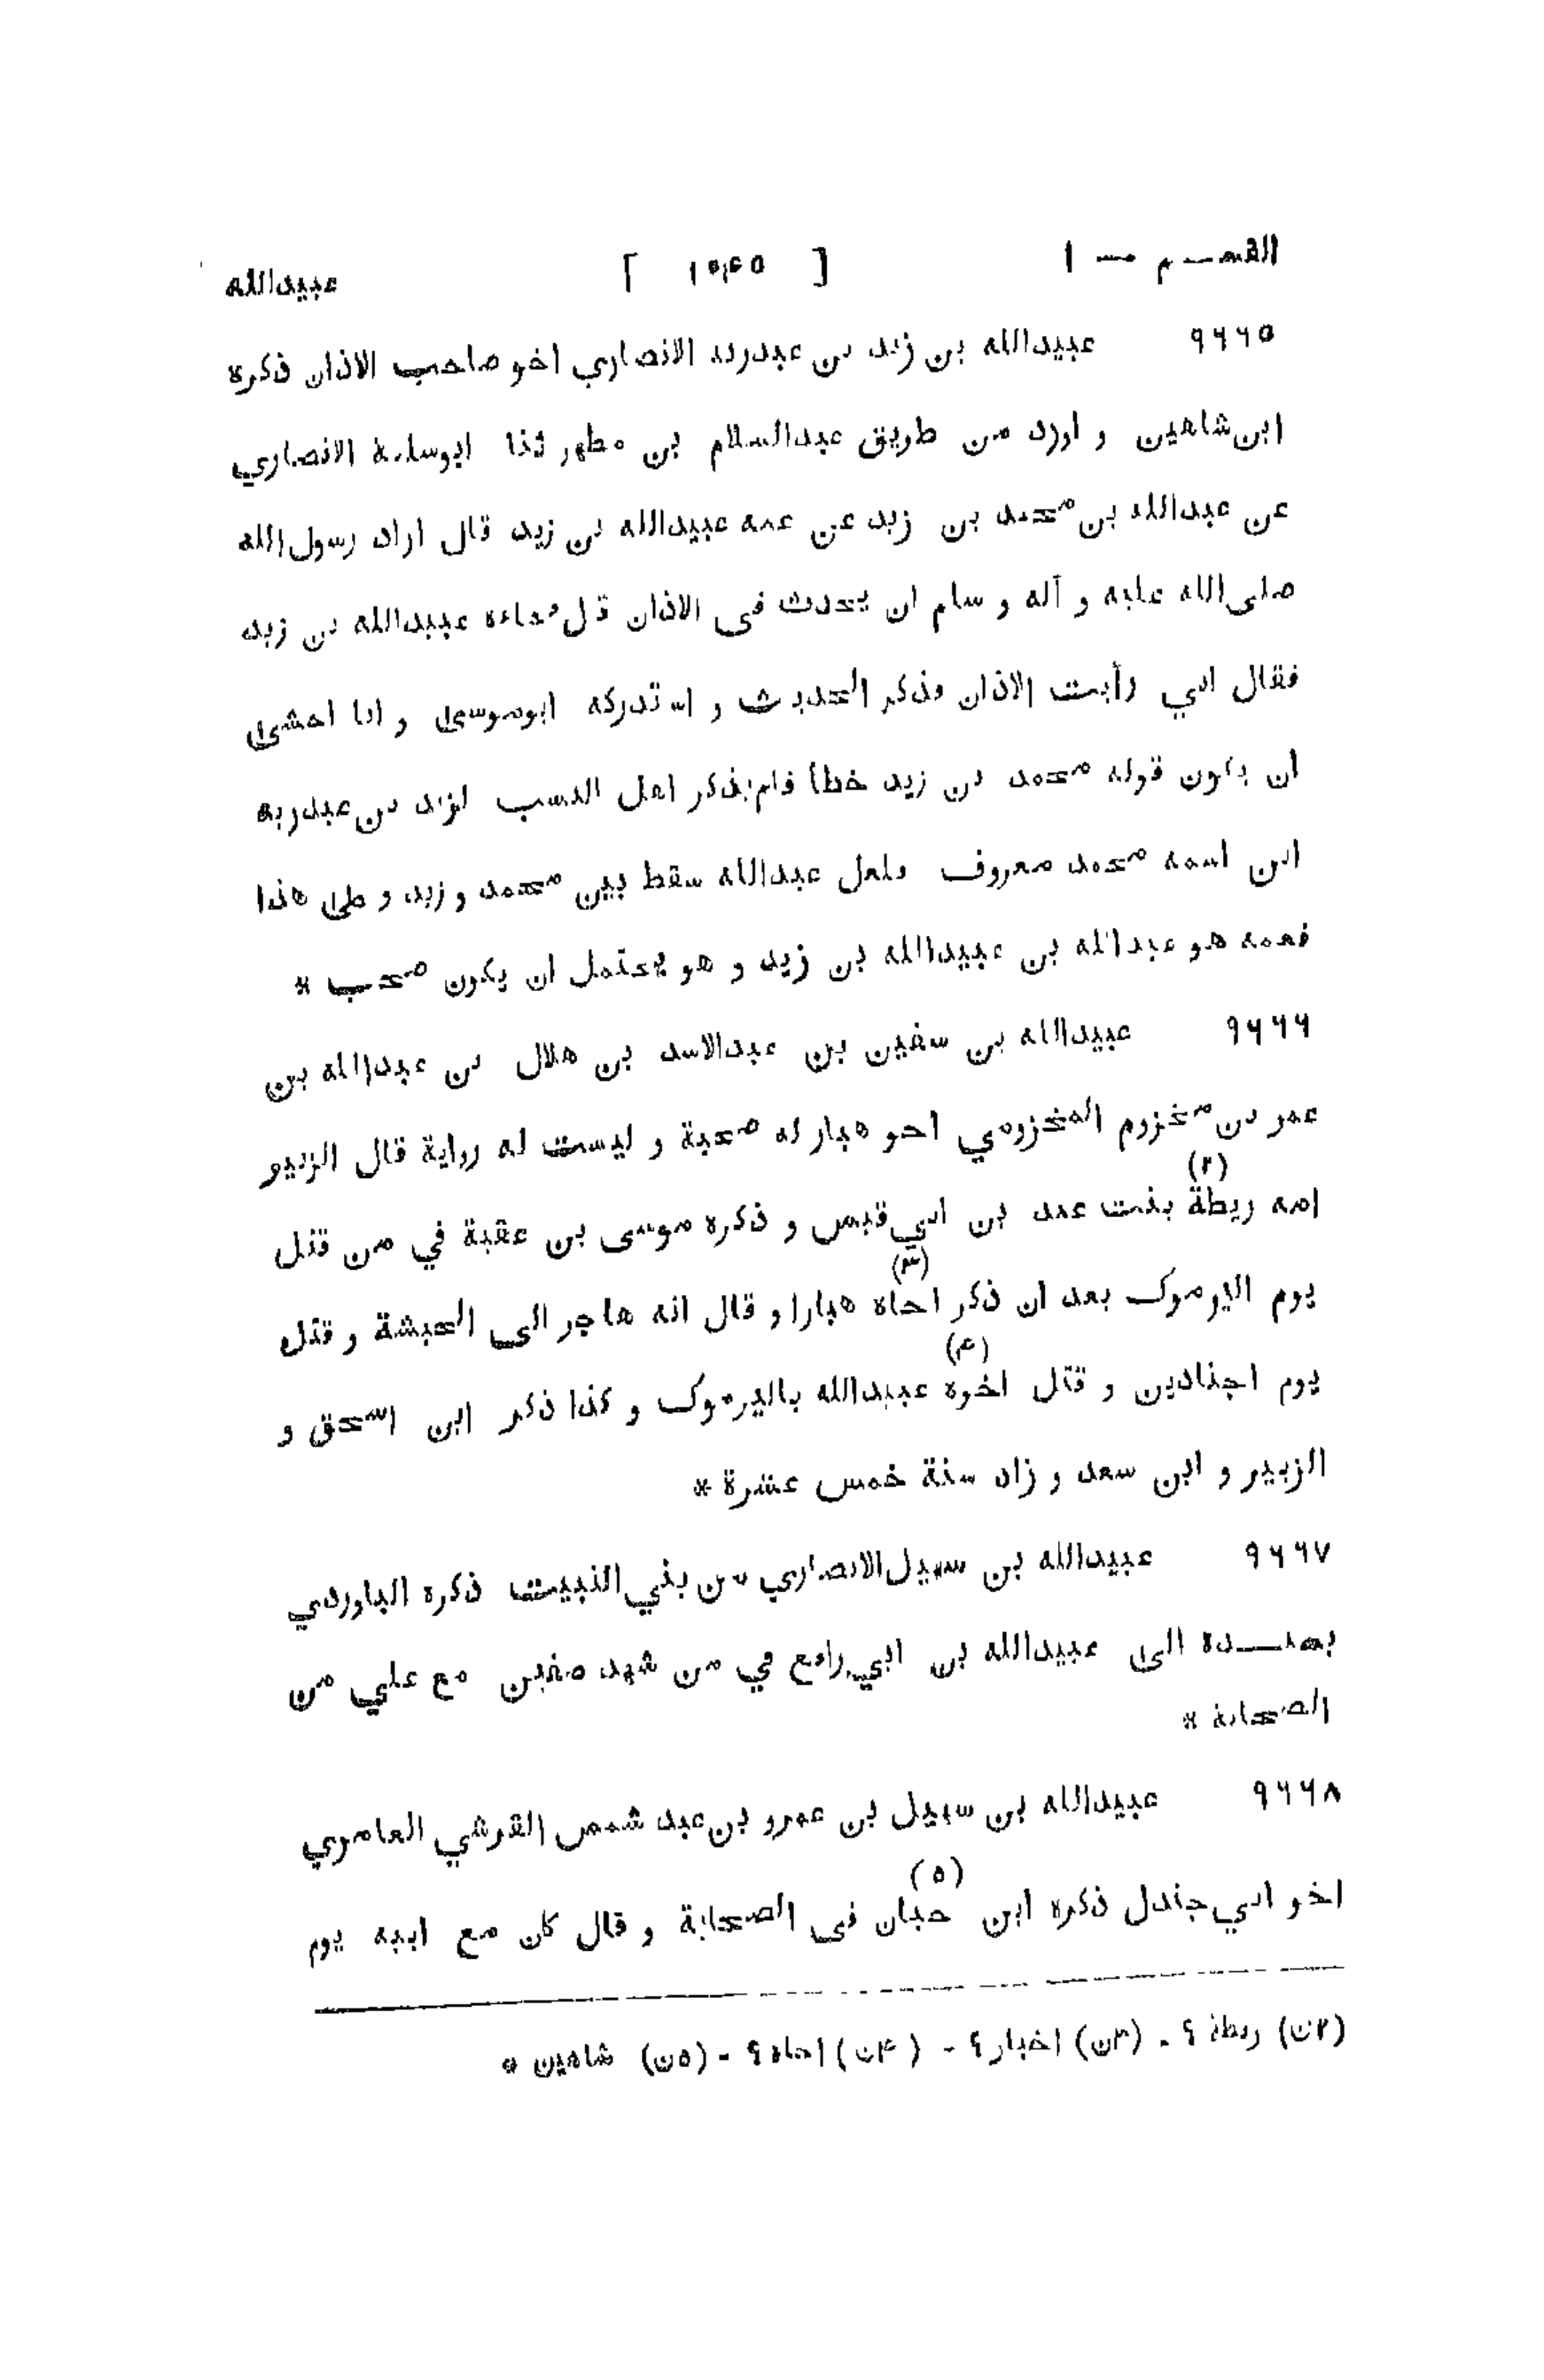 القسم — ١ [ ١٠٤٥ ] عبيدالله
٩٦٦٥ عبيدالله بن زيد بن عبدربه الانصاري اخو صاحب الاذان ذكره
ابن شاهين و اورد من طريق عبدالسلام بن مطهر ثنا ابوسلمة الانصاري
عن عبدالله بن محمد بن زيد عن عمه عبيدالله بن زيد قال اراد رسول الله
صلى الله عليه و آله و سلم ان يحدث فى الاذان قال فجاءه عبيدالله بن زيد
فقال اني رأيت الاذان فذكر الحديث و استدركه ابوموسى و انا اخشى
ان يكون قوله محمد بن زيد خطأ فلم يذكر اهل النسب لزيد بن عبدربه
ابن اسمه محمد معروف فلعل عبدالله سقط بين محمد و زيد و على هذا
فعمه هو عبدالله بن عبيدالله بن زيد و هو يحتمل ان يكون صحب *
٩٦٦٦ عبيدالله بن سفين بن عبدالاسد بن هلال بن عبدالله بن
عمر بن مخزوم المخزومي اخو هبار له صحبة و ليست له رواية قال الزبير
امه ريطة (٢) بنت عبد بن ابي قيس و ذكره موسى بن عقبة في من قتل
يوم اليرموك بعد ان ذكر اخاه (٣) هبارا و قال انه هاجر الى الحبشة و قتل
يوم اجنادين و قتل اخوه (٤) عبيدالله باليرموك و كذا ذكر ابن اسحق و
الزبير و ابن سعد و زاد سنة خمس عشرة *
٩٦٦٧ عبيدالله بن سهيل الانصاري من بني النبيت ذكره الباوردي
بسنده الى عبيدالله بن ابي رافع في من شهد صفين مع علي من
الصحابة *
٩٦٦٨ عبيدالله بن سهيل بن عمرو بن عبد شمس القرشي العامري
اخو ابي جندل ذكره ابن حبان (٥) فى الصحابة و قال كان مع ابيه يوم
(٢ن) ربطة ؟ - (٣ن) اخبار ؟ - (۴ن) اخاه ؟ - (٥ن) شاهين *